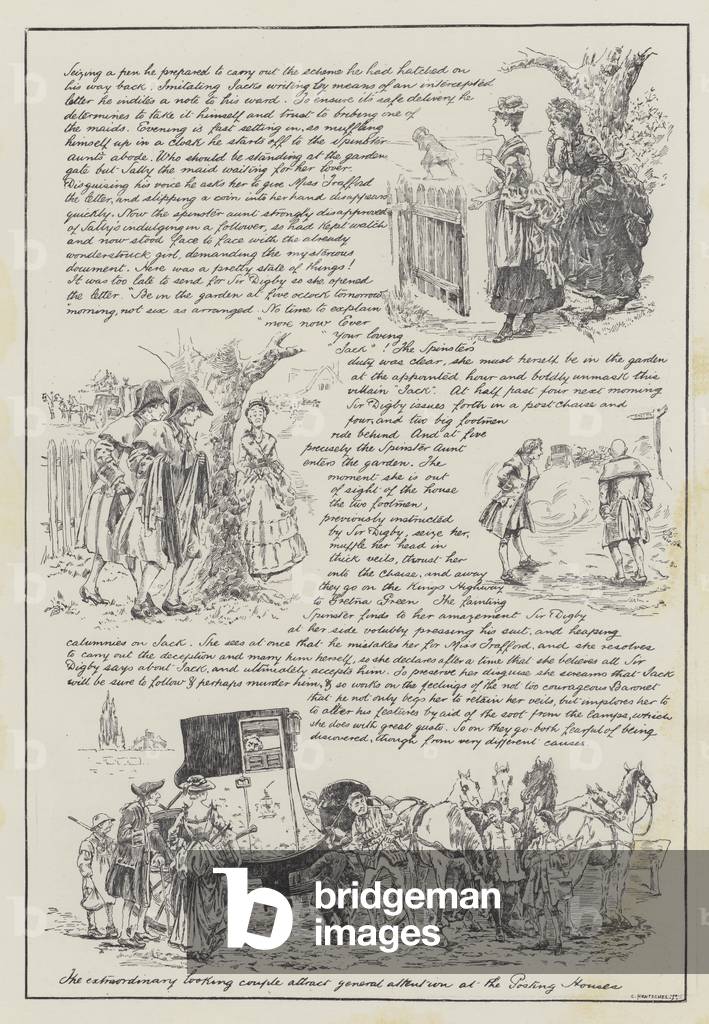 Seizing a pen he prepared to carry out the scheme he had hatched on
his way back. Imitating Jacks writing by means of an intercepted
letter he indites a note to his ward. To ensure its safe delivery he
determines to take it himself and trust to bribing one of
the maids. Evening is fast setting in, so muffling
himself up in a cloak he starts off to the spinster
aunt's abode. Who should be standing at the garden
gate but Sally the maid waiting for her lover.
Disguising his voice he asks her to give Miss Trafford
the letter, and slipping a coin into her hand disappears
quickly. Now the spinster aunt strongly disapproved
of Sally's indulging in a follower, so had kept watch
and now stood face to face with the already
wonderstruck girl, demanding the mysterious
document. Here was a pretty state of things!
It was too late to send for Sir Digby so she opened
the letter. Be in the garden at five oclock tomorrow
"morning, not six as arranged. No time to explain
"more now Ever
"Your loving
Jack"! The Spinster's
duty was clear, she must herself be in the garden
at the appointed hour and boldly unmask this
villain "Jack". At half past four next morning
Sir Digby issues forth in a post chaise and
four, and two big footmen
ride behind And at five
precisely the Spinster aunt
enters the garden. The
moment she is out
of sight of the house
the two footmen,
previously instructed
by Sir Digby, seize her,
muffle her head in
thick veils, thrust her
into the chaise, and away
they go on the Kings Highway
to Gretna Green The fainting
Spinster finds to her amazement Sir Digby
at her side volubly pressing his suit, and heaping
calumnies on Jack. She sees at once that he mistakes her for Miss Trafford, and she resolves
to carry out the deception and marry him herself, so she declares after a time that she believes all Sir
Digby says about Jack, and ultimately accepts him. To preserve her disguise she screams that Jack
will be sure to follow & perhaps murder him, & so works on the feelings of the not too courageous Baronet
that he not only begs her to retain her veils, but implores her to
to alter his features by aid of the soot from the lamps, which
she does with great gusto. So on they go both fearful of being
discovered, though from very different causes.
b bridgeman
images
The extraordinary looking couple attract general attention at the Posting Houses